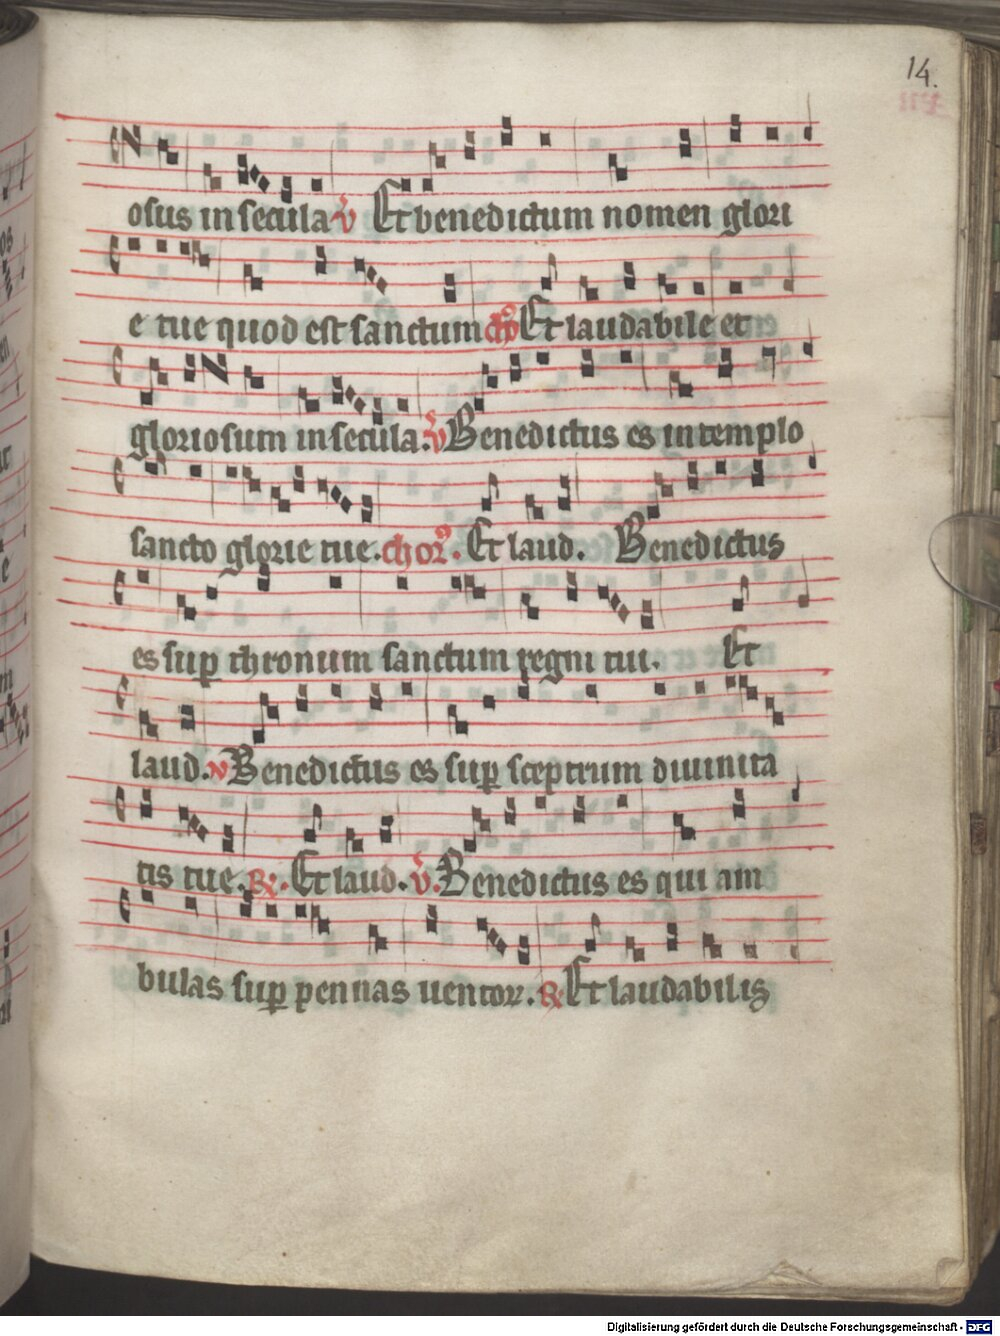 14.
osus in secula v̄ Et benedictum nomen glori
e tue quod est sanctum chō Et laudabile et
gloriosum in secula. v̄ Benedictus es in templo
sancto glorie tue. chor⁹. Et laud. Benedictus
es sup thronum sanctum regni tui. Et
laud. v Benedictus es sup sceptrum diuinita
tis tue. R. Et laud. v̄. Benedictus es qui am
bulas sup pennas uentoꝝ. R Et laudabilis
Digitalisierung gefördert durch die Deutsche Forschungsgemeinschaft - DFG